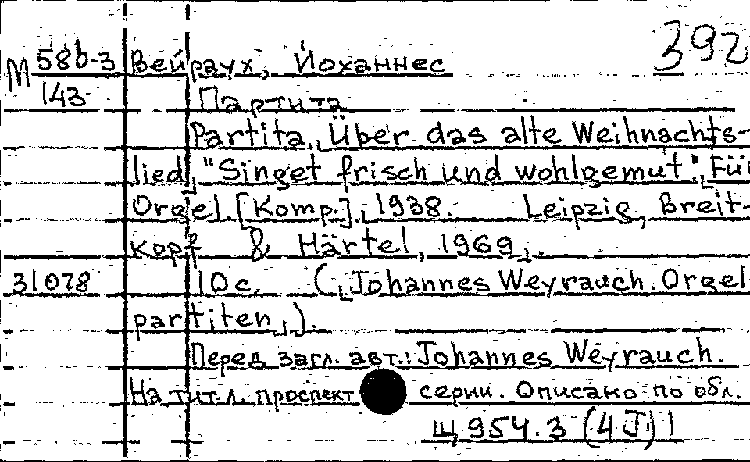 392
М 58б-3 Вейраух, Йоханнес
143 Партита
Partita „Über das alte Weihnachts-
lied „"Singet frisch und wohlgemut", Für
Orgel [Komp.], 1938. Leipzig, Breit-
kopf & Härtel, 1969.
31078 10 с. („Johannes Weyrauch. Orgel
partiten„).
Перед загл. авт.: Johannes Weyrauch.
На тит. л. проспект серии. Описано по обл.
Щ 954.3 (4J) 1